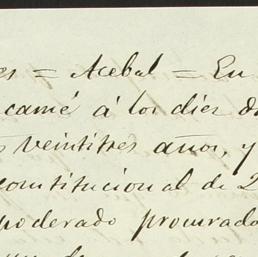 es = Acebal = En
camé á los diez d
s veintitres años, y
constitucional de 2
poderado procurado